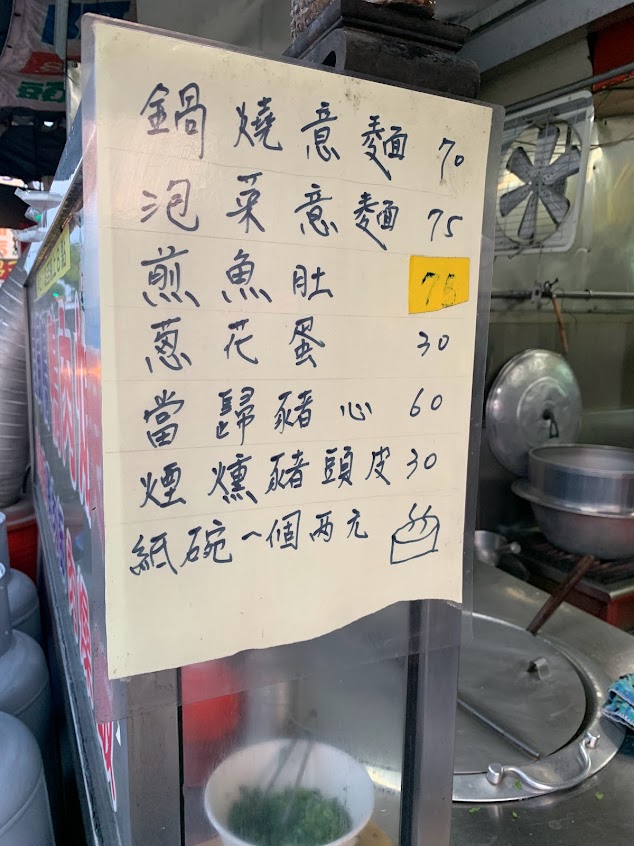 鍋燒意麵 70
泡菜意麵 75
煎魚肚 75
蔥花蛋 30
當歸豬心 60
煙燻豬頭皮 30
紙碗一個兩元